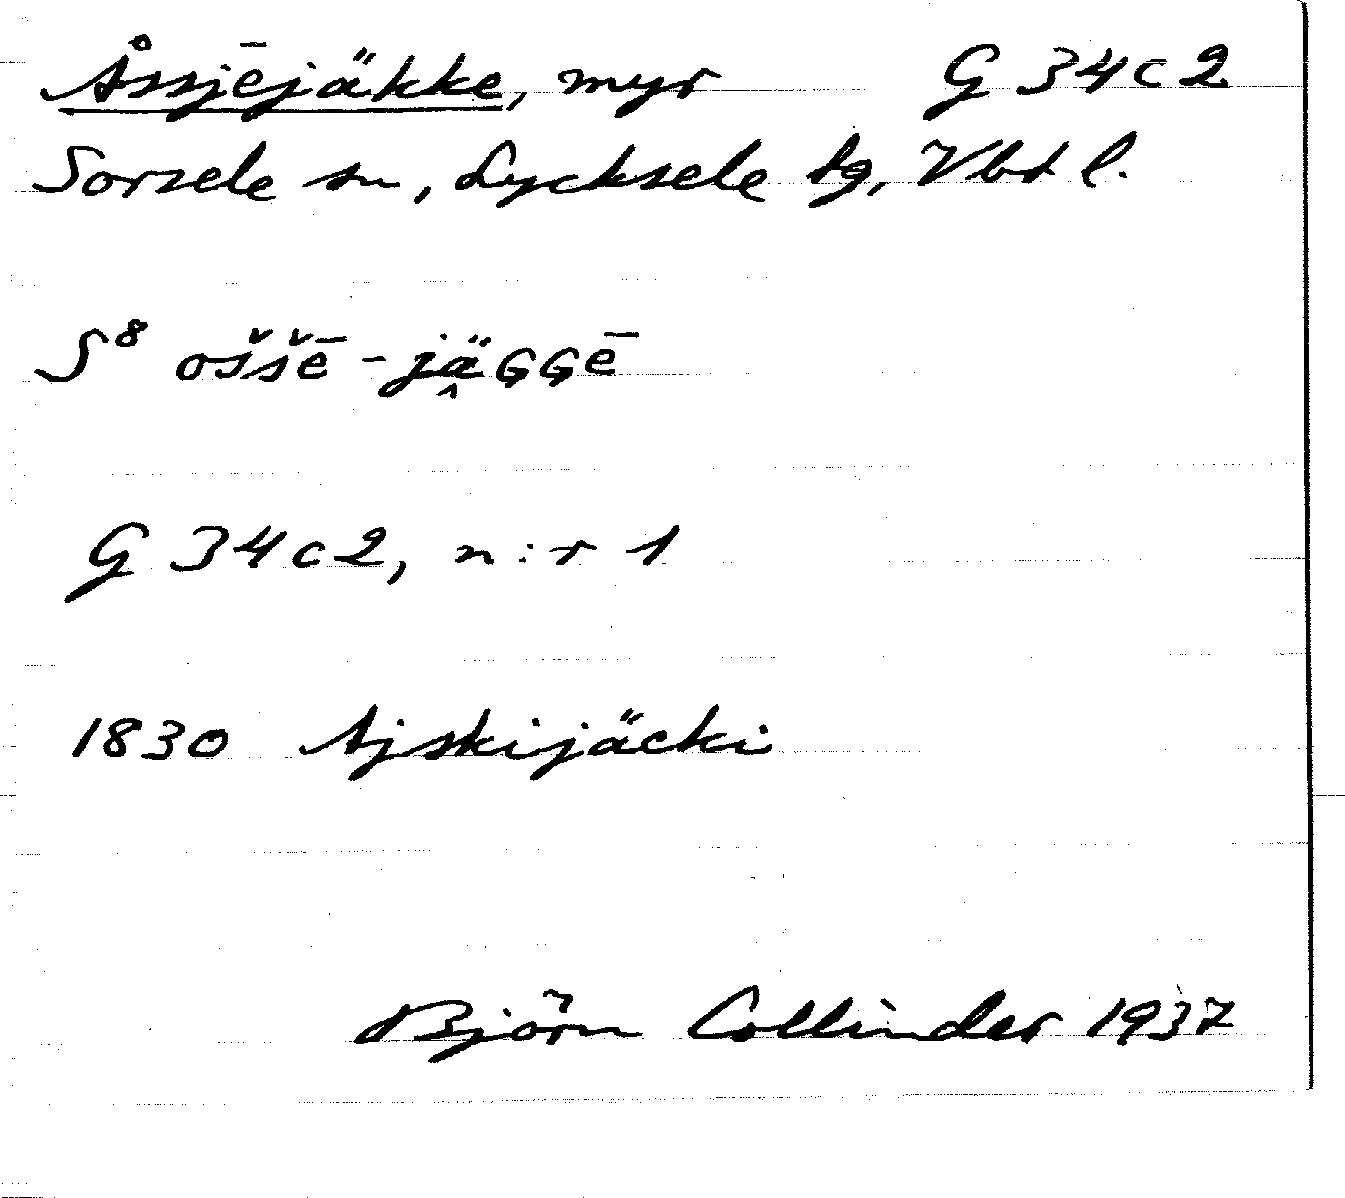 Åssjējäkke, myr G 34c2
Sorsele sn, Lycksele tg, Vbt l.
S⁸ oššē-jä̭ɢ̜ɢ̜ē
G 34c2, n:r 1
1830 Ajskijäcki
Björn Collinder 1937